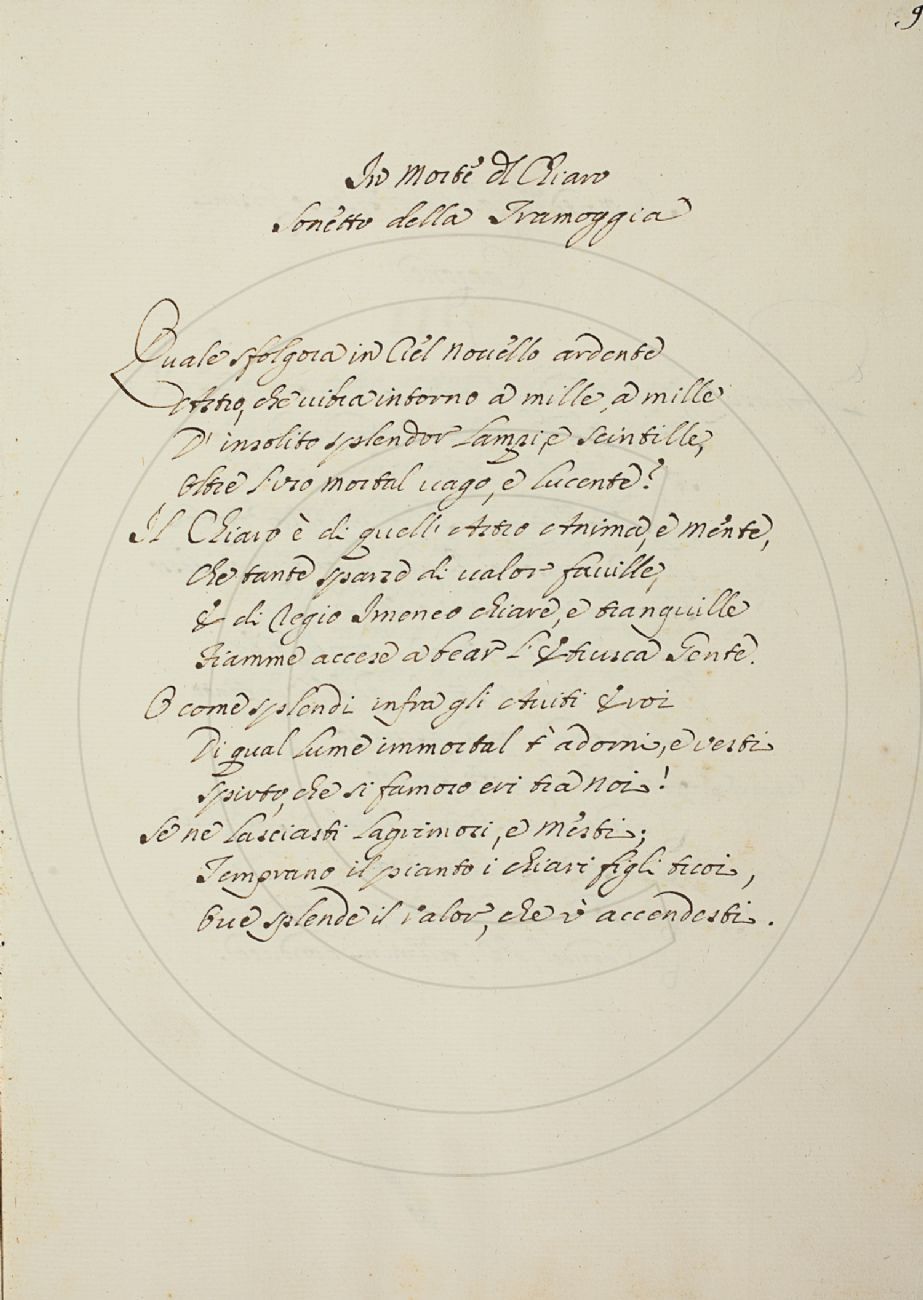 9
In Morte dl Chiaro
Sonetto della Tramoggia
Quale sfolgora in Ciel novello ardente
Astro, che vibra intorno a mille, a mille
D' insolito splendor Lampi, e scintille,
Oltre l'uso mortal vago, e lucente?
Il Chiaro è di quell' Astro Anima, e mente,
Che tante sparse di valor faville,
E di Regio Imeneo chiare, e tranquille
Fiamme accese a bear l'Etrusca Gente.
O come splendi infra gli Aviti Eroi
Di qual lume immortal t' adorni, e vesti
Spirto, che sì famoso eri tra noi!
Se ne lasciasti lagrimosi, e mesti;
Temprano il pianto i chiari figli tuoi,
Ove splende il valor, che v' accendesti.